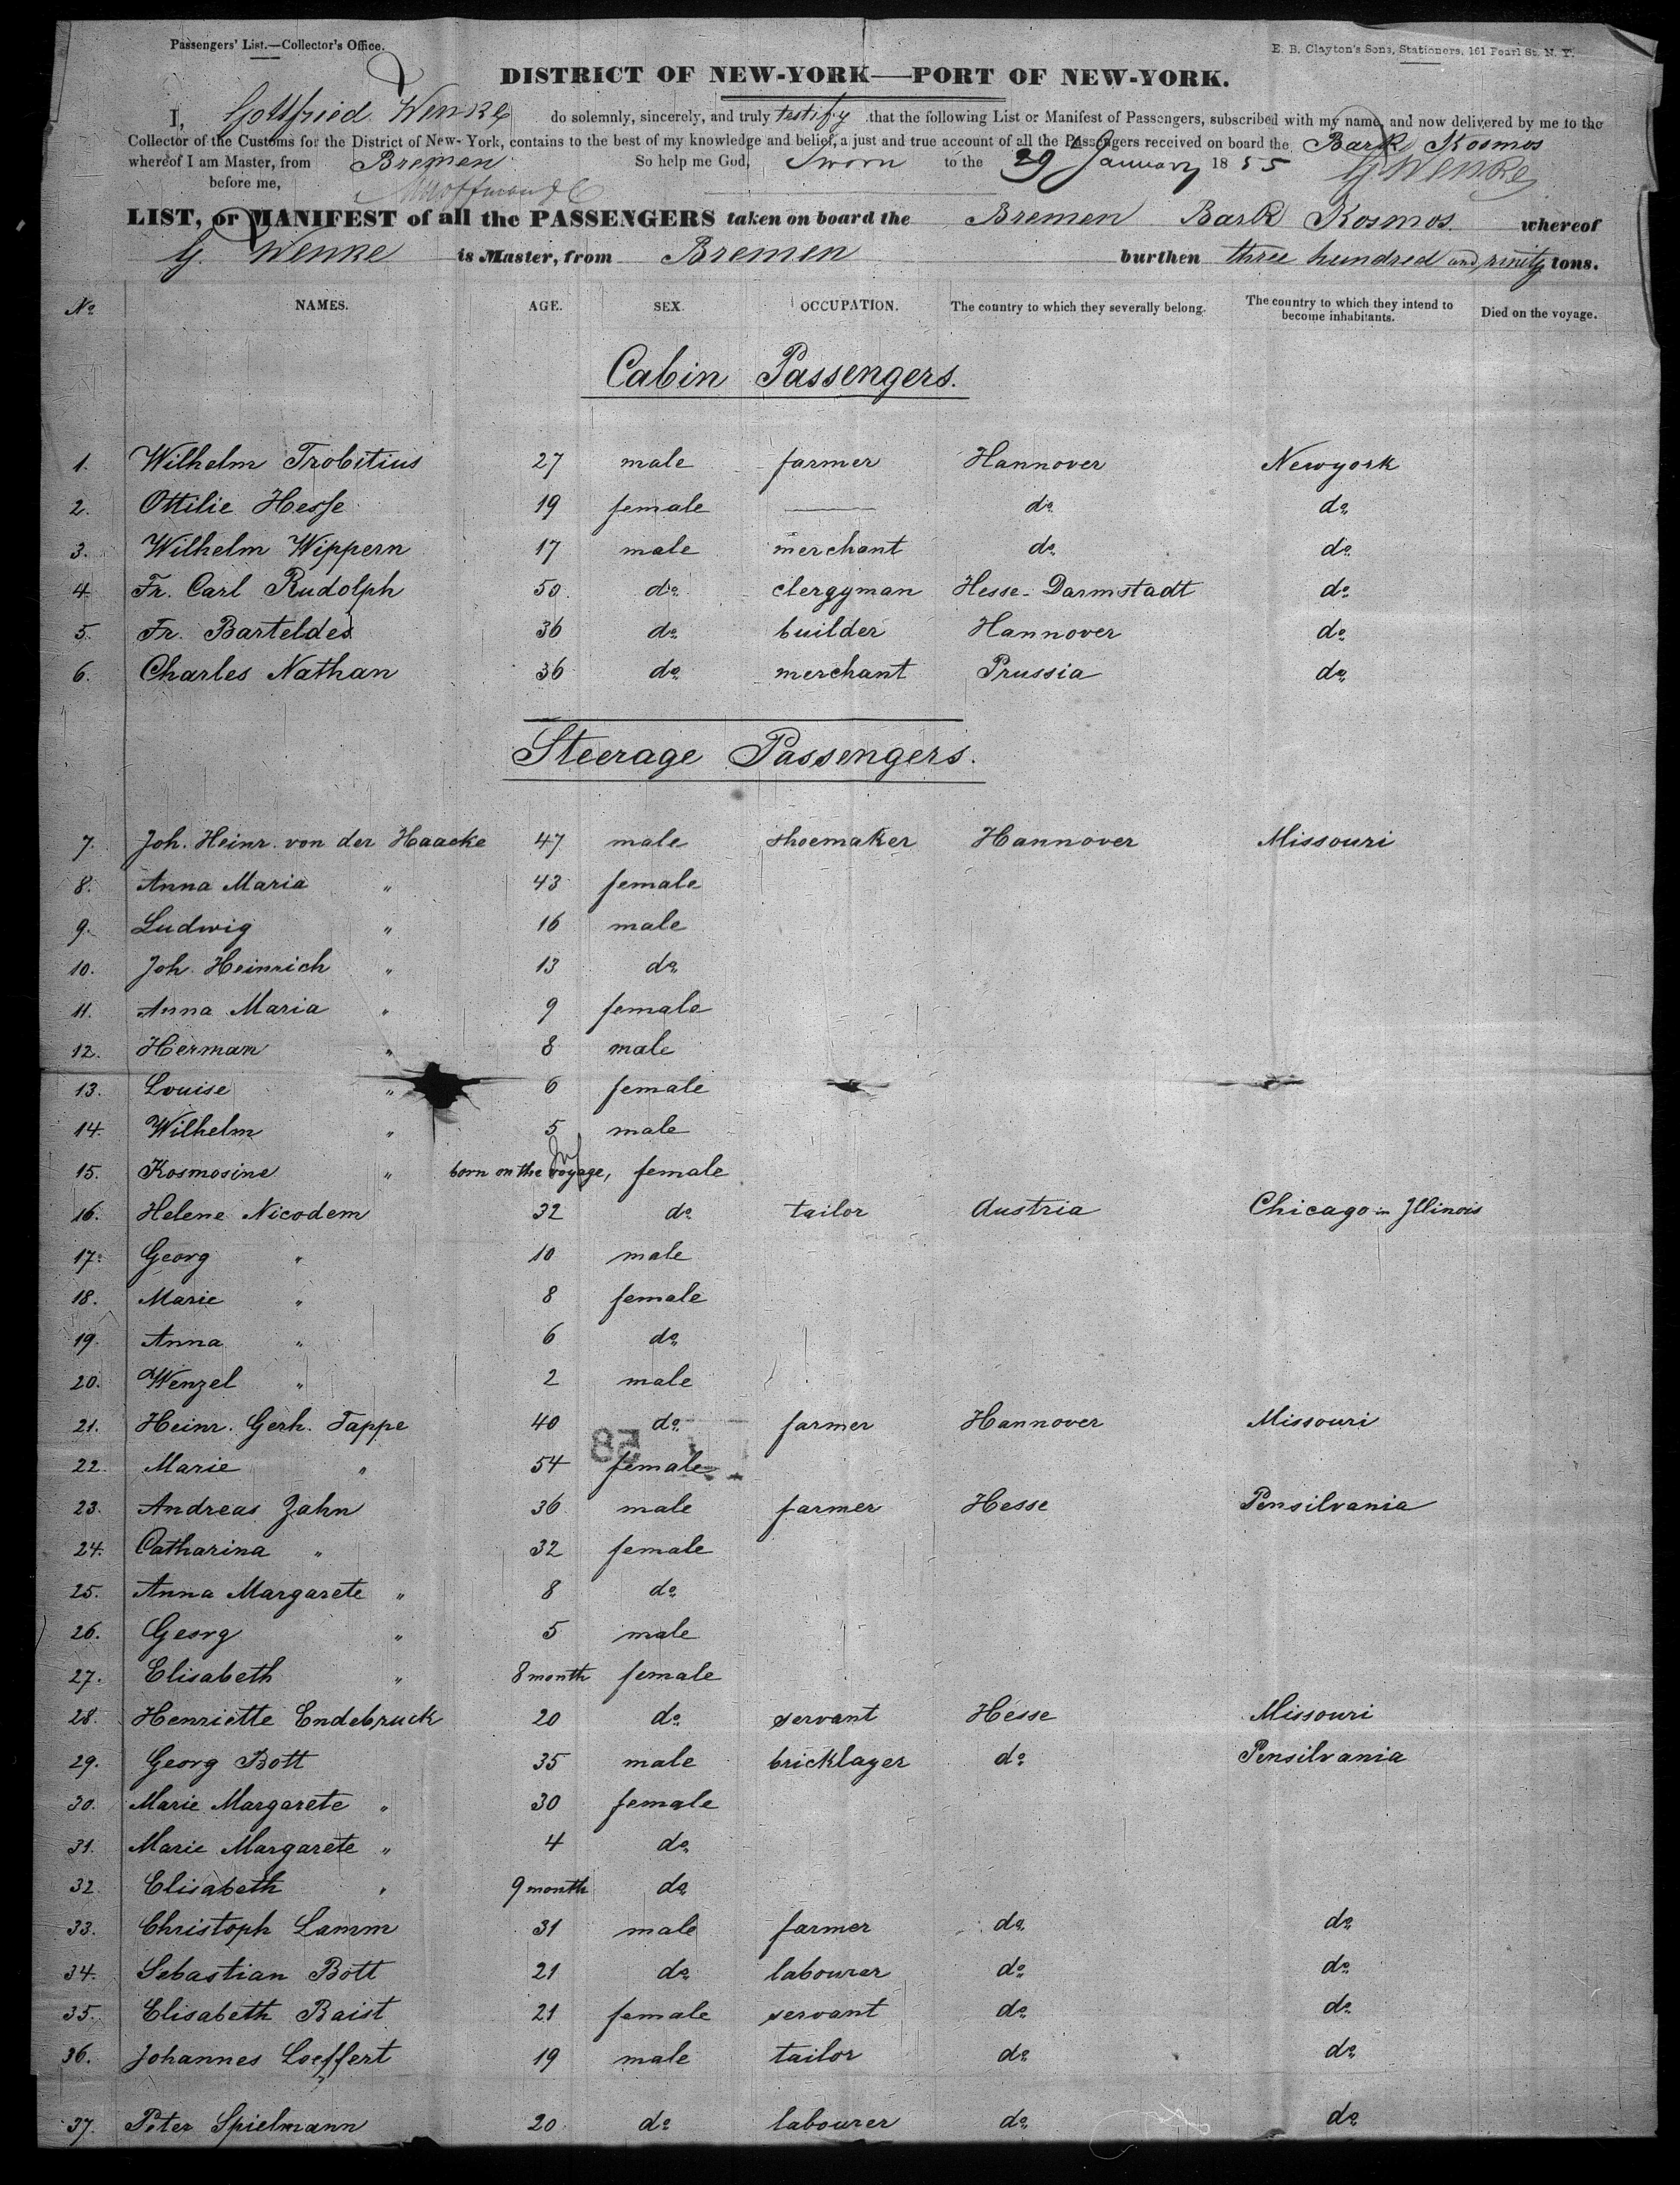 Passengers' List.—Collector's Office.
E. B. Clayton's Sons, Stationers, 161 Pearl St. N. Y.
DISTRICT OF NEW-YORK—PORT OF NEW-YORK.
I, Gottfried Wenke do solemnly, sincerely, and truly testify that the following List or Manifest of Passengers, subscribed with my name, and now delivered by me to the
Collector of the Customs for the District of New-York, contains to the best of my knowledge and belief, a just and true account of all the Passengers received on board the Bark Kosmos
whereof I am Master, from Bremen So help me God, Sworn to the 29 January 1855 G. Wenke
before me,
LIST, or MANIFEST of all the PASSENGERS taken on board the Bremen Bark Kosmos. whereof
G. Wenke is Master, from Bremen burthen three hundred and ninity tons.
No. NAMES. AGE. SEX. OCCUPATION. The country to which they severally belong. The country to which they intend to become inhabitants. Died on the voyage.
Cabin Passengers.
1. Wilhelm Trobitius 27 male farmer Hannover Newyork
2. Ottilie Hesse 19 female —— do do
3. Wilhelm Wippern 17 male merchant do do
4. Fr. Carl Rudolph 50 do clergyman Hesse-Darmstadt do
5. Fr. Barteldes 36 do builder Hannover do
6. Charles Nathan 36 do merchant Prussia do
Steerage Passengers.
7. Joh. Heinr. von der Haacke 47 male shoemaker Hannover Missouri
8. Anna Maria " 43 female
9. Ludwig " 16 male
10. Joh. Heinrich " 13 do
11. Anna Maria " 9 female
12. Herman " 8 male
13. Louise " 6 female
14. Wilhelm " 5 male
15. Kosmosine " born on the voyage, female
16. Helene Nicodem 32 do tailor Austria Chicago in Illinois
17. Georg " 10 male
18. Marie " 8 female
19. Anna " 6 do
20. Wenzel " 2 male
21. Heinr. Gerh. Tappe 40 do farmer Hannover Missouri
22. Marie " 54 female
23. Andreas Zahn 36 male farmer Hesse Pensilvania
24. Catharina " 32 female
25. Anna Margarete " 8 do
26. Georg " 5 male
27. Elisabeth " 8 month female
28. Henriette Endebruck 20 do servant Hesse Missouri
29. Georg Bott 35 male bricklayer do Pensilvania
30. Marie Margarete " 30 female
31. Marie Margarete " 4 do
32. Elisabeth " 9 month do
33. Christoph Lamm 31 male farmer do do
34. Sebastian Bott 21 do labourer do do
35. Elisabeth Baist 21 female servant do do
36. Johannes Loeffert 19 male tailor do do
37. Peter Spielmann 20 do labourer do do